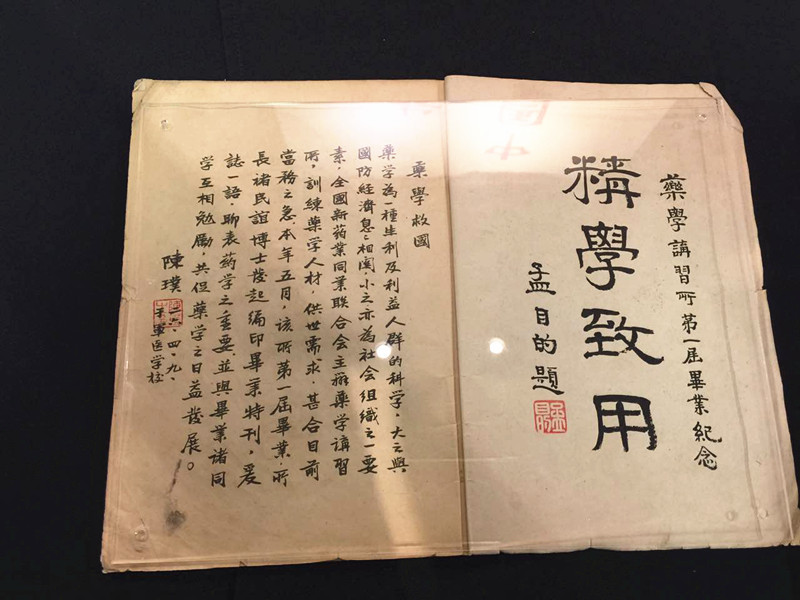 藥學講習所第一屆畢業紀念
精學致用
孟目的題
藥學救國
藥学為一種生利及利益人群的科学，大之與
國防經濟息息相関，小之亦為社会組織之一要
素，全國新药業同業联合会主辦藥学講習
所，訓練藥学人材，供世需求，甚合目前
當務之急，本年五月，該所第一屆畢業，所
長褚民誼博士發起編印畢業特刊，爰
誌一語，聊表药学之重要，並與畢業諸同
学互相勉勵，共促藥学之日益發展。
陳璞
四、九、
軍医学校